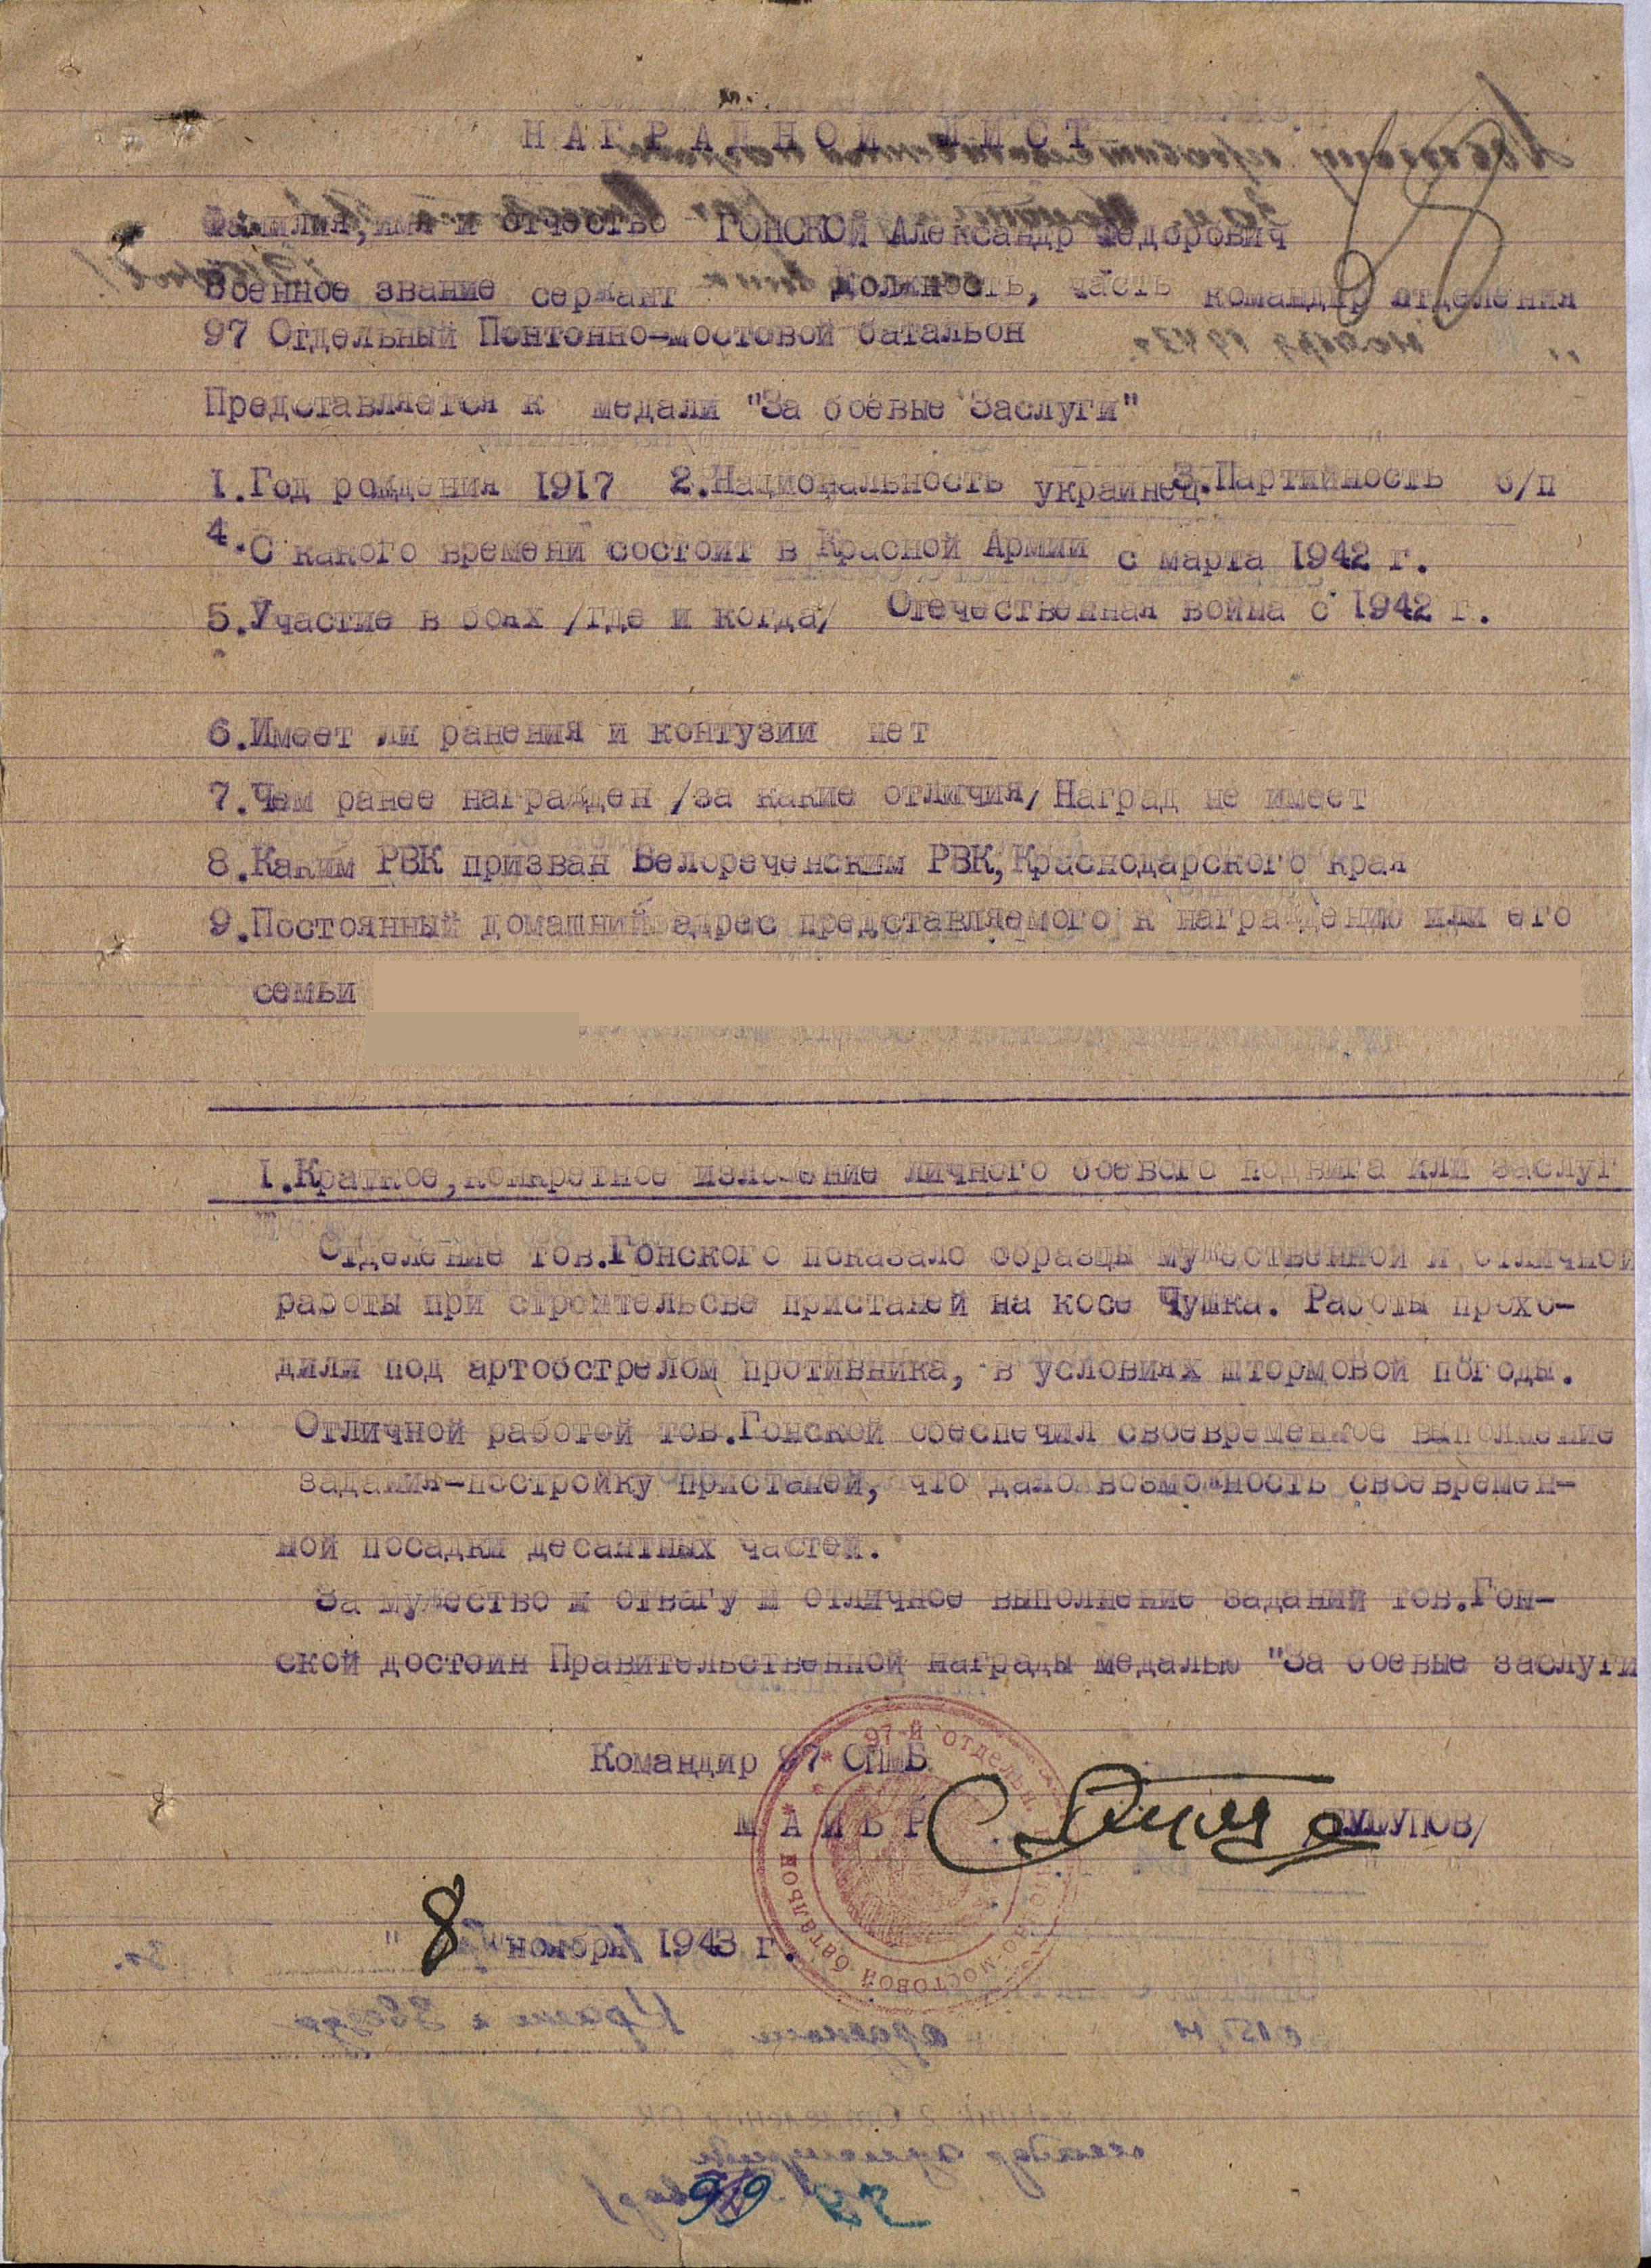 НАГРАДНОЙ ЛИСТ
Фамилия,имя и отчество ГОНСКОЙ Александр Федорович
Военное звание сержант Должность, часть командир отделения
97 Отдельный Понтонно-мостовой батальон
Представляется к медали "За боевые Заслуги"
1.Год рождения 1917 2.Национальность украинец 3.Партийность б/п
4.С какого времени состоит в Красной Армии с марта 1942 г.
5.Участие в боях /где и когда/ Отечественная война с 1942 г.
6.Имеет ли ранения и контузии нет
7.Чем ранее награжден /за какие отличия/ Наград не имеет
8.Каким РВК призван Белореченским РВК,Краснодарского края
9.Постоянный домашний адрес представляемого к награждению или его
семьи
1.Краткое,конкретное изложение личного боевого подвига или заслуг
Отделение тов.Гонского показало образцы мужественной и отличной
работы при строительсве пристаней на косе Чушка. Работы прохо-
дили под артобстрелом противника, в условиях штормовой погоды.
Отличной работой тов.Гонской обеспечил своевременное выполнение
задания-постройку пристаней, что дало возможность своевремен-
ной посадки десантных частей.
За мужество и отвагу и отличное выполнение заданий тов.Гон-
ской достоин Правительственной награды медалью "За боевые заслуги
Командир 97 ОПМБ
МАЙОР
97-й отдельн. мостовой батальон
"8" ноября 1943 г.
99